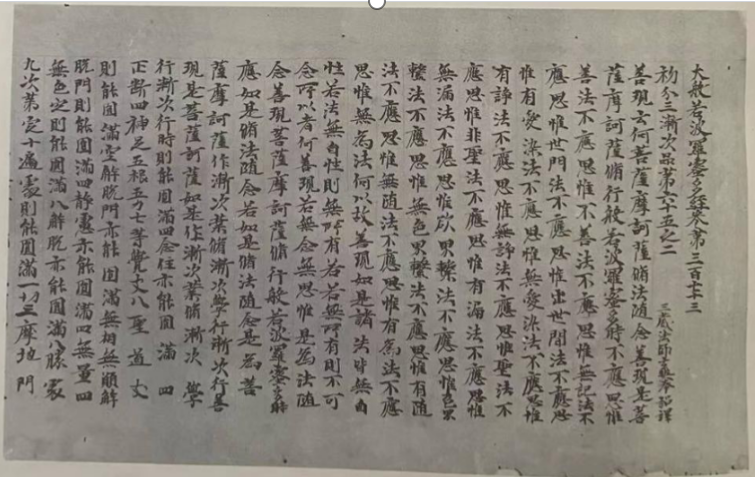 大般若波羅蜜多經卷第三百七十三
初分三漸次品第六十五之二 三藏法師玄奘奉 詔譯
善現云何菩薩摩訶薩脩法隨念善現是菩
薩摩訶薩脩行般若波羅蜜多時不應思惟
善法不應思惟不善法不應思惟無記法不
應思惟世間法不應思惟出世間法不應思
惟有愛染法不應思惟無愛染法不應思惟
有諍法不應思惟無諍法不應思惟聖法不
應思惟非聖法不應思惟有漏法不應思惟
無漏法不應思惟欲界繫法不應思惟色界
繫法不應思惟無色界繫法不應思惟有隨
法不應思惟無隨法不應思惟有為法不應
思惟無為法何以故善現如是諸法皆無自
性若法無自性則無所有若若無所有則不可
念所以者何善現若無念無思惟是為法隨
念善現菩薩摩訶薩脩行般若波羅蜜多時
應如是脩法隨念若如是脩法隨念是為菩
薩摩訶薩作漸次業脩漸次學行漸次行善
現是菩薩訶薩如是作漸次業脩漸次學
行漸次行時則能圓滿四念住亦能圓滿四
正斷四神足五根五力七等覺支八聖道支
則能圓滿空解脫門亦能圓滿無相無願解
脫門則能圓滿四靜慮亦能圓滿四無量四
無色定則能圓滿八解脫亦能圓滿八勝處
九次第定十遍處則能圓滿一切三摩地門